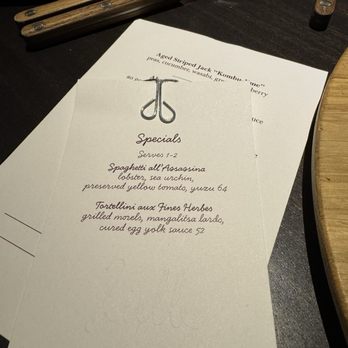 Aged Striped Jack "Kombu-jime"
peas, cucumber, wasabi,
Specials
Serves 1-2
Spaghetti all'Assassina
lobster, sea urchin,
preserved yellow tomato, yuzu 64
Tortellini aux Fines Herbes
grilled morels, mangalitsa lardo,
cured egg yolk sauce 52